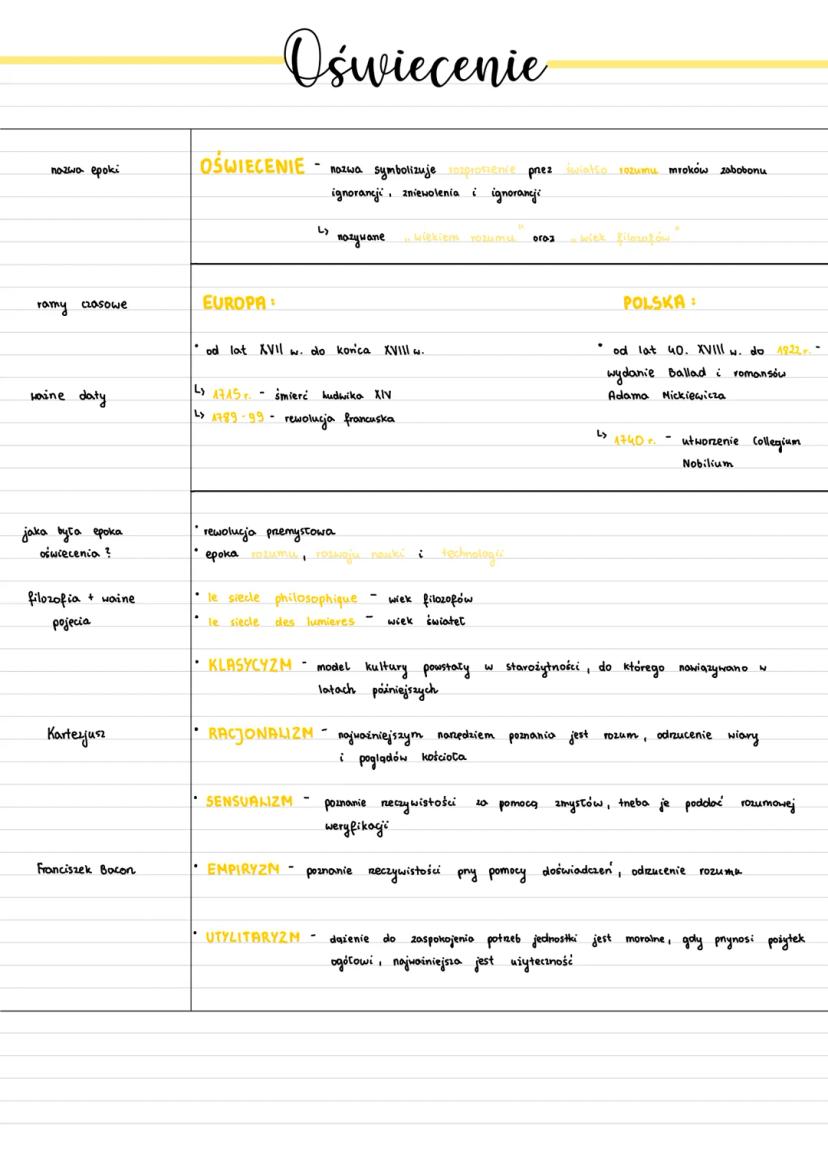 Oświecenie
nazwa epoki
OŚWIECENIE - nazwa symbolizuje rozproszenie przez światło rozumu mroków zabobonu
ignorancji, zniewolenia i ignorancji
↳ nazywane „wiekiem rozumu" oraz „wiek filozofów"
ramy czasowe
EUROPA:
POLSKA:
• od lat XVII w. do końca XVIII w.
• od lat 40. XVIII w. do 1822 r. -
wydanie Ballad i romansów
ważne daty
↳ 1715 r. - śmierć Ludwika XIV
Adama Mickiewicza
↳ 1789-99 - rewolucja francuska
↳ 1740 r. - utworzenie Collegium
Nobilium
jaka była epoka
oświecenia?
• rewolucja przemysłowa
• epoka rozumu, rozwoju nauki i technologii
filozofia + ważne
pojęcia
• le siecle philosophique - wiek filozofów
• le siecle des lumieres - wiek świateł
• KLASYCYZM - model kultury powstały w starożytności, do którego nawiązywano w
latach późniejszych
Kartezjusz
• RACJONALIZM - najważniejszym narzędziem poznania jest rozum, odrzucenie wiary
i poglądów kościoła
• SENSUALIZM - poznanie rzeczywistości za pomocą zmysłów, trzeba je poddać rozumowej
weryfikacji
Franciszek Bacon
• EMPIRYZM - poznanie rzeczywistości przy pomocy doświadczeń, odrzucenie rozumu
• UTYLITARYZM - dążenie do zaspokojenia potrzeb jednostki jest moralne, gdy przynosi pożytek
ogółowi, najważniejsza jest użyteczność